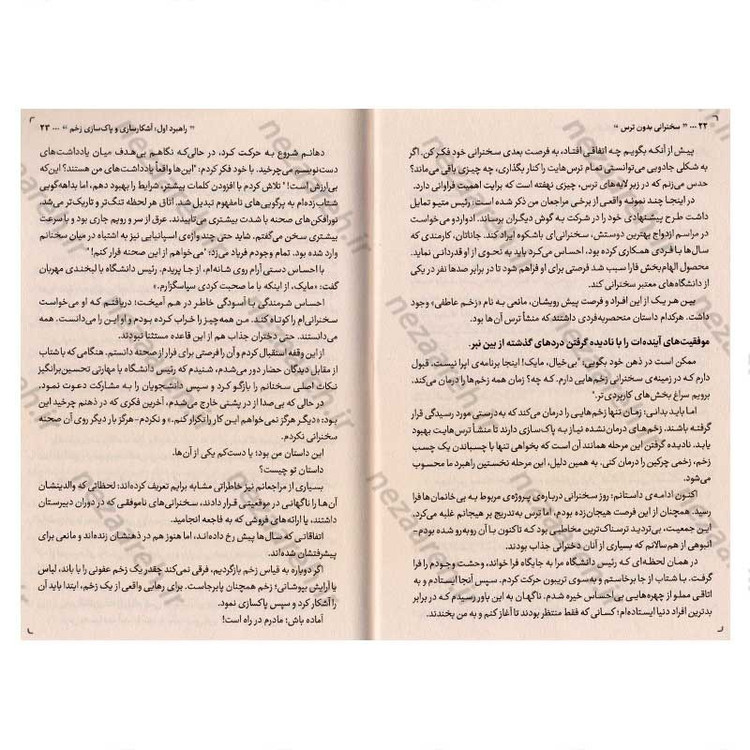 ۲۲ ... " سخنرانی بدون ترس "
پیش از آنکه بگویم چه اتفاقی افتاد، به فرصت بعدی سخنرانی خود فکر کن. اگر
به شکلی جادویی می‌توانستی تمام ترس‌هایت را کنار بگذاری، چه چیزی باقی می‌ماند؟
حدس می‌زنم که در زیر لایه‌های ترس، چیزی نهفته است که برایت اهمیت فراوانی دارد.
در اینجا چند نمونهٔ واقعی از برخی مراجعان من ذکر شده است: رئیس متیو تمایل
داشت طرح پیشنهادی خود را در شرکت به گوش دیگران برساند. ادواردو می‌خواست
در مراسم ازدواج بهترین دوستش، سخنرانی‌ای باشکوه ایراد کند. جاناتان، کارمندی که
سال‌ها با فردی همکاری کرده بود، احساس می‌کرد باید به نحوی از او قدردانی نماید.
محصول الهام‌بخش فارا سبب شد فرصتی برای او فراهم شود تا در برابر صدها نفر در یکی
از دانشگاه‌های معتبر سخنرانی کند.
بین هر یک از این افراد و فرصت پیش رویشان، مانعی به نام «زخم عاطفی» وجود
داشت. هرکدام داستان منحصربه‌فردی داشتند که منشأ ترس آن‌ها بود.
موفقیت‌های آینده‌ات را با نادیده گرفتن دردهای گذشته از بین نبر.
ممکن است در ذهن خود بگویی: "بی‌خیال، مایک! اینجا برنامه‌ی اپرا نیست. قبول
دارم که در زمینه‌ی سخنرانی زخم‌هایی دارم. که چه؟ زمان همه زخم‌ها را درمان می‌کند.
برویم سراغ بخش‌های کاربردی تر."
اما باید بدانی: زمان تنها زخم‌هایی را درمان می‌کند که به‌درستی مورد رسیدگی قرار
گرفته باشند. زخم‌های درمان‌نشده نیاز به پاک‌سازی دارند تا منشأ ترس‌هایت بهبود
یابد. نادیده گرفتن این مرحله همانند آن است که بخواهی تنها با چسباندن یک چسب
زخم، زخمی چرکین را درمان کنی. به همین دلیل، این مرحله نخستین راهبرد ما محسوب
می‌شود.
اکنون ادامه‌ی داستانم: روز سخنرانی درباره‌ی پروژه‌ی مربوط به بی‌خانمان‌ها فرا
رسید. همچنان از این فرصت هیجان‌زده بودم، اما ترس به‌تدریج بر هیجانم غلبه می‌کرد.
این جمعیت، بی‌تردید ترسناک‌ترین مخاطبی بود که تاکنون با آن روبه‌رو شده بودم-
انبوهی از هم‌سالانم که بسیاری از آنان دخترانی جذاب بودند.
در همان لحظه‌ای که رئیس دانشگاه مرا به جایگاه فرا خواند، وحشت وجودم را فرا
گرفت. با شتاب از جا برخاستم و به‌سوی تریبون حرکت کردم. سپس آنجا ایستادم و به
اتاقی مملو از چهره‌هایی بی‌احساس خیره شدم. ناگهان به این باور رسیدم که در برابر
بدترین افراد دنیا ایستاده‌ام؛ کسانی که فقط منتظر بودند تا آغاز کنم و به من بخندند.
" راهبرد اول؛ آشکارسازی و پاک‌سازی زخم " ... ۲۳
دهانم شروع به حرکت کرد، در حالی‌که نگاهم بی‌هدف میان یادداشت‌های
دست‌نویسم می‌چرخید. با خود فکر کردم: "این‌ها واقعاً یادداشت‌های من هستند؟ این‌که
بی‌ارزش است! " تلاش کردم با افزودن کلمات بیشتر، شرایط را بهبود دهم، اما بداهه‌گویی
شتاب‌زده‌ام به پرگویی‌های نامفهوم تبدیل شد. اتاق هر لحظه تنگ‌تر و تاریک‌تر می‌شد.
نورافکن‌های صحنه با شدت بیشتری می‌تابیدند. عرق از سر و رویم جاری بود و با سرعت
بیشتری سخن می‌گفتم. شاید حتی چند واژه‌ی اسپانیایی نیز به اشتباه در میان سخنانم
وارد شده بود. تمام وجودم فریاد می‌زد: "می‌خواهم از این صحنه فرار کنم! "
با احساس دستی آرام روی شانه‌ام، از جا پریدم. رئیس دانشگاه با لبخندی مهربان
گفت: «مایک، از اینکه با ما صحبت کردی سپاسگزارم.»
احساس شرمندگی با آسودگی خاطر در هم آمیخت؛ دریافتم که او می‌خواست
سخنرانی‌ام را کوتاه کند. من همه‌چیز را خراب کرده بودم و او این را می‌دانست. همه
می‌دانستند. حتی دختران جذاب هم از این قاعده مستثنا نبودند.
از این وقفه استقبال کردم و آن را فرصتی برای فرار از صحنه دانستم. هنگامی که با شتاب
از مقابل دیدگان حضار دور می‌شدم، شنیدم که رئیس دانشگاه با مهارتی تحسین‌برانگیز
نکات اصلی سخنانم را بازگو کرد و سپس دانشجویان را به مشارکت دعوت نمود.
در حالی که بی‌صدا از در پشتی خارج می‌شدم، آخرین فکری که در ذهنم چرخید این
بود: «دیگر هرگز نمی‌خواهم این کار را تکرار کنم.» و نکردم-هرگز بار دیگر روی آن صحنه
سخنرانی نکردم.
این داستان من بود؛ یا دست‌کم یکی از آن‌ها.
داستان تو چیست؟
بسیاری از مراجعانم نیز خاطراتی مشابه برایم تعریف کرده‌اند: لحظاتی که والدینشان
آن‌ها را ناگهانی در موقعیتی قرار دادند، سخنرانی‌های ناموفقی که در دوران دبیرستان
داشتند، یا ارائه‌های فروشی که به فاجعه انجامید.
اتفاقاتی که سال‌ها پیش رخ داده‌اند، اما هنوز هم در ذهنشان زنده‌اند و مانعی برای
پیشرفتشان شده‌اند.
اگر دوباره به قیاس زخم بازگردیم، فرقی نمی‌کند چقدر یک زخم عفونی را با باند، لباس
یا آرایش بپوشانی؛ زخم همچنان پابرجاست. برای رهایی واقعی از یک زخم، ابتدا باید آن
را آشکار کرد و سپس پاکسازی نمود.
آماده باش؛ مادرم در راه است!
nezareh.ir